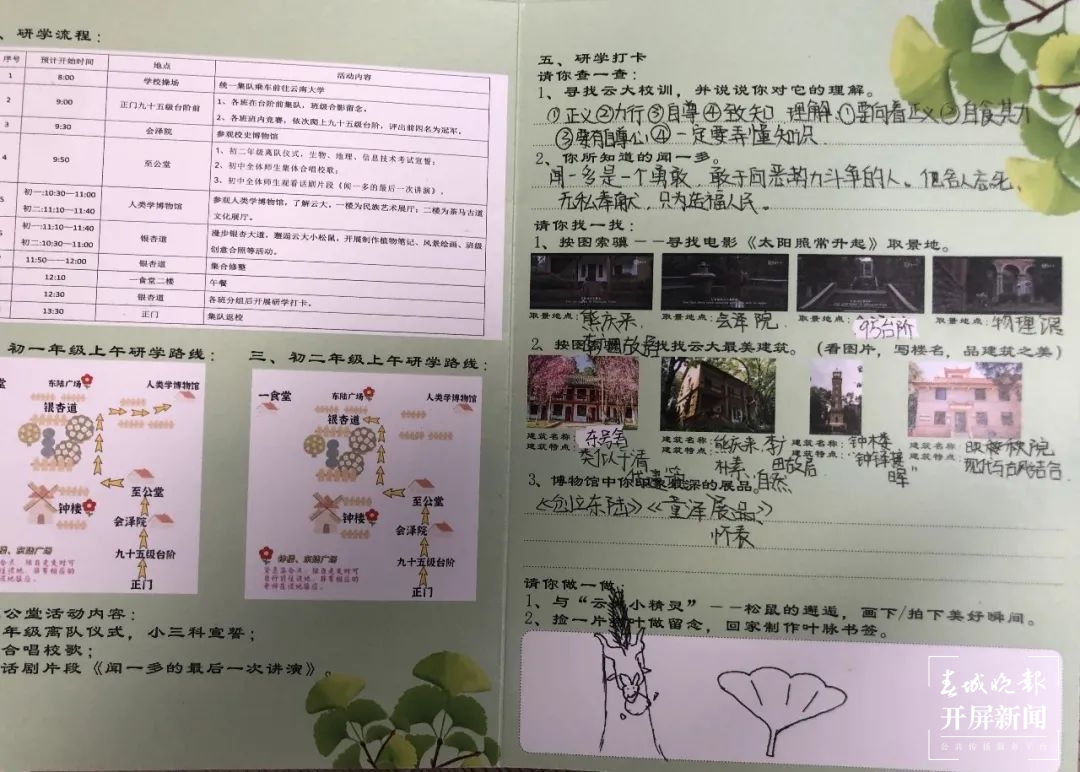 、研学流程：
序号 预计开始时间 地点 活动内容
1 8:00 学校操场 统一集队乘车前往云南大学
2 9:00 正门九十五级台阶前 1、各班在台阶前集队，班级合影留念。
2、各班班内竞赛，依次爬上九十五级台阶，评出前四名为冠军。
3 9:30 会泽院 参观校史博物馆
4 9:50 至公堂 1、初二年级离队仪式，生物、地理、信息技术考试宣誓；
2、初中全体师生集体合唱校歌；
3、初中全体师生观看话剧片段《闻一多的最后一次讲演》。
5 初一:10:30—11:00 初二:11:10—11:40 人类学博物馆 参观人类学博物馆，了解云大，一楼为民族艺术展厅；二楼为茶马古道
文化展厅。
初一:11:10—11:40 初二:10:30—11:00 银杏道 漫步银杏大道，邂逅云大小松鼠，开展制作植物笔记、风景绘画、班级
创意合照等活动。
11:50——12:00 银杏道 集合修整
12:10 一食堂二楼 午餐
12:30 银杏道 各班分组后开展研学打卡。
13:30 正门 集队返校
初一年级上午研学路线：
堂 东陆广场 人类学博物馆
银杏道
至公堂
钟楼
会泽院
九十五级台阶
正门
三、初二年级上午研学路线：
一食堂 东陆广场 人类学博物馆
银杏道
至公堂
钟楼
会泽院
九十五级台阶
正门
公堂活动内容：
年级离队仪式，小三科宣誓；
合唱校歌；
话剧片段《闻一多的最后一次讲演》。
五、研学打卡
请你查一查：
1、寻找云大校训，并说说你对它的理解。
①正义②力行③自尊④致知 理解：①要向着正义②自食其力
③要有自尊心④一定要弄懂知识
2、你所知道的闻一多。
闻一多是一个勇敢、敢于向恶势力斗争的人。
无私奉献，只为造福人民。
请你找一找：
1、按图索骥——寻找电影《太阳照常升起》取景地。
取景地点：熊庆来 取景地点：会泽院 取景地点：95台阶 取景地点：物理馆
故居
2、按图 找找云大最美建筑。（看图片，写楼名，品建筑之美）
建筑名称：东号舍 建筑名称：熊庆来、李广田故居 建筑名称：钟楼 建筑名称：映秋院
建筑特点： 建筑特点：朴素、自然 建筑特点： 建筑特点：现代与古风结合
3、博物馆中你印象最深的展品。
《创立东陆》《童泽展品》
怀表
请你做一做：
1、与“云 小精灵”——松鼠的邂逅，画下/拍下美好瞬间。
2、捡一片 叶做留念，回家制作叶脉书签。
春城晚报
开屏新闻